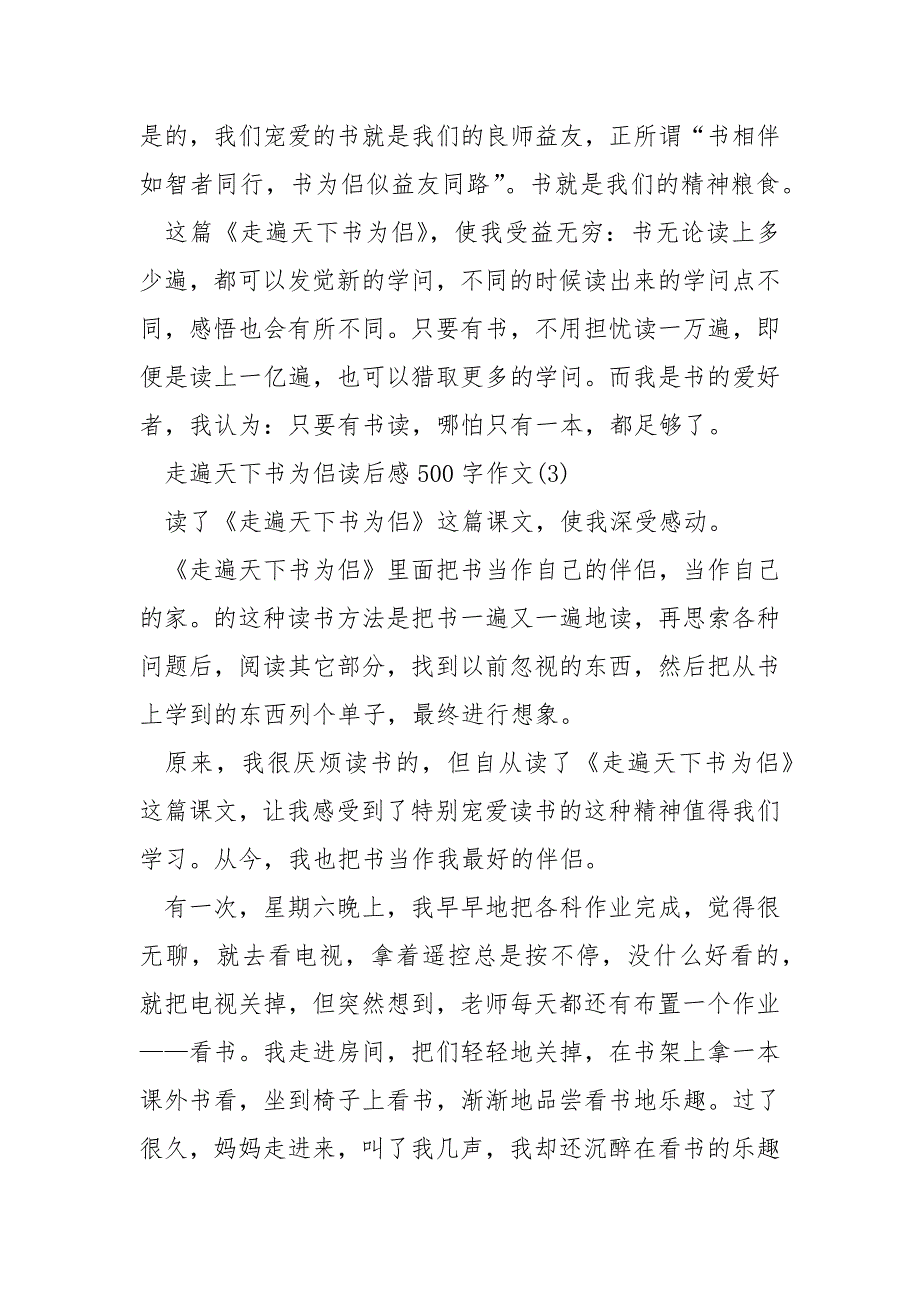 是的，我们宠爱的书就是我们的良师益友，正所谓“书相伴
如智者同行，书为侣似益友同路”。书就是我们的精神粮食。
这篇《走遍天下书为侣》，使我受益无穷：书无论读上多
少遍，都可以发觉新的学问，不同的时候读出来的学问点不
同，感悟也会有所不同。只要有书，不用担忧读一万遍，即
便是读上一亿遍，也可以猎取更多的学问。而我是书的爱好
者，我认为：只要有书读，哪怕只有一本，都足够了。
走遍天下书为侣读后感 500 字作文(3)
读了《走遍天下书为侣》这篇课文，使我深受感动。
《走遍天下书为侣》里面把书当作自己的伴侣，当作自己
的家。的这种读书方法是把书一遍又一遍地读，再思索各种
问题后，阅读其它部分，找到以前忽视的东西，然后把从书
上学到的东西列个单子，最终进行想象。
原来，我很厌烦读书的，但自从读了《走遍天下书为侣》
这篇课文，让我感受到了特别宠爱读书的这种精神值得我们
学习。从今，我也把书当作我最好的伴侣。
有一次，星期六晚上，我早早地把各科作业完成，觉得很
无聊，就去看电视，拿着遥控总是按不停，没什么好看的，
就把电视关掉，但突然想到，老师每天都还有布置一个作业
——看书。我走进房间，把们轻轻地关掉，在书架上拿一本
课外书看，坐到椅子上看书，渐渐地品尝看书地乐趣。过了
很久，妈妈走进来，叫了我几声，我却还沉醉在看书的乐趣